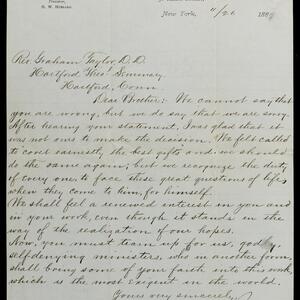 R. W. Hubard.
New York, 11/26 188
Rev. Graham Taylor, D. D.
Hartford Theo. Seminary.
Hartford, Conn.
Dear Brother: We cannot say that
you are wrong, but we do say that we are sorry.
After hearing your statement, I was glad that it
was not ours to make the decision. We felt called
to covet earnestly the best gifts, and we should
do the same again; but we recognize the duty
of every one to face these great questions of life,
when they come to him, for himself.
We shall feel a renewed interest in you and
in your work, even though it stands in the
way of the realization of our hopes.
Now, you must team up for us, godly
self-denying ministers, who in another form,
shall bring some of your faith into this work,
which is the most exigent in the world.
Yours very sincerely,